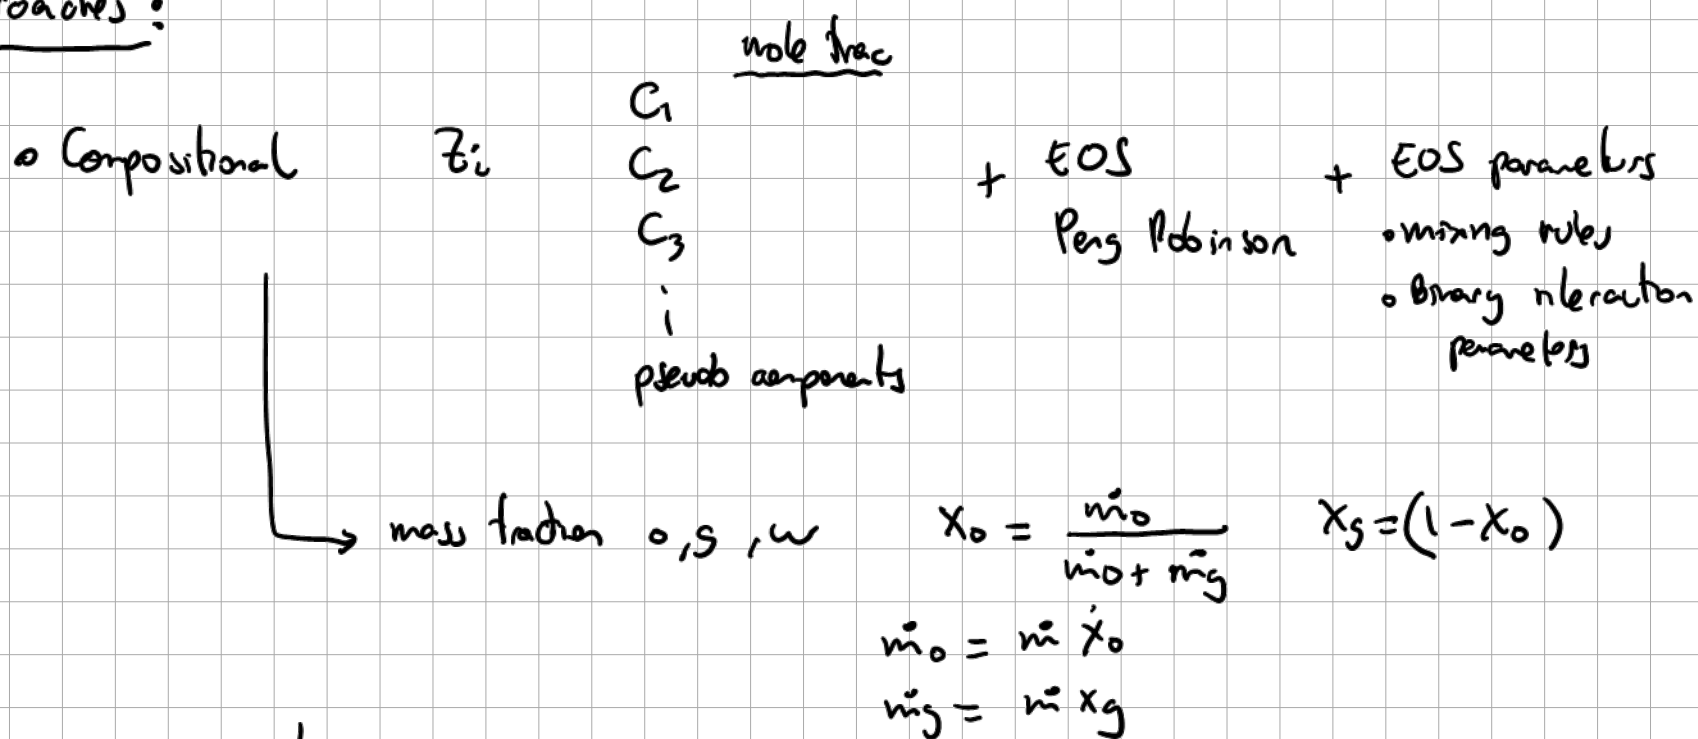 oaches :
mole frac
• Compositional Zi C1 C2 C3 i pseudo components + EOS Peng Robinson + EOS parameters
• mixing rules
• Binary interaction
parameters
mass fraction o, g, w xo = ṁo / (ṁo + ṁg) xg = (1 - xo)
ṁo = ṁ xo
ṁg = ṁ xg